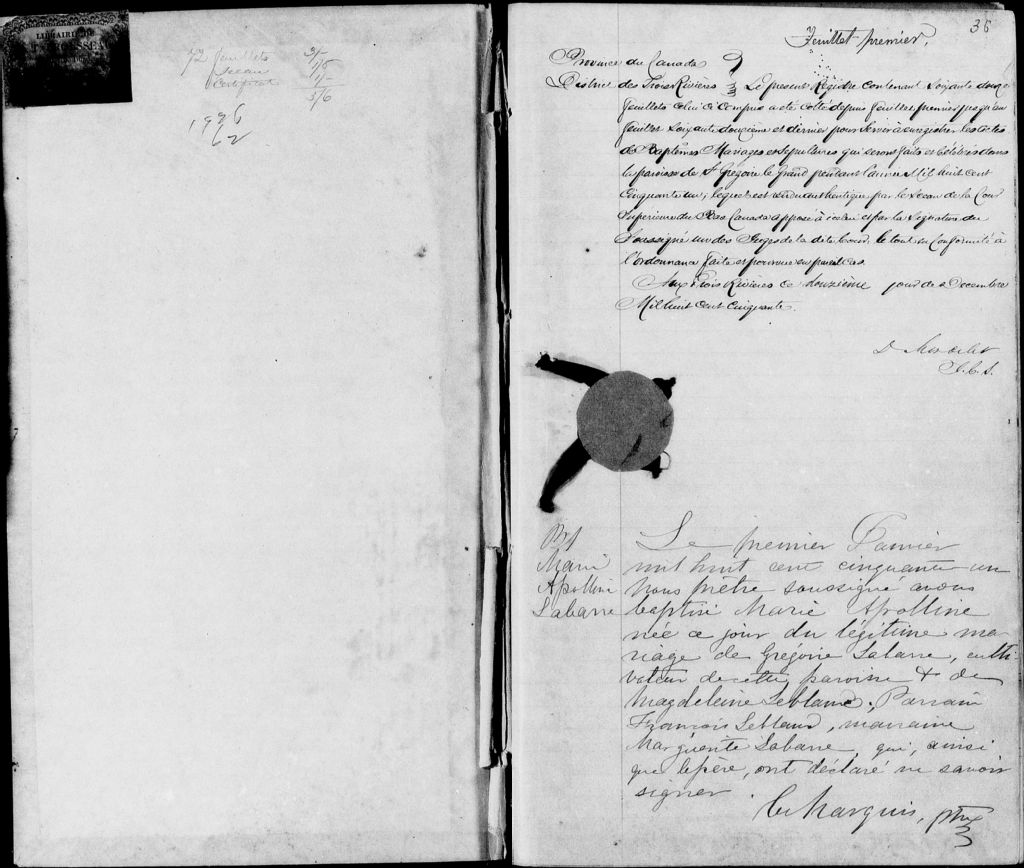 LIBRAIRIE DE
72 feuillets
Sceau
Certificat
2/-
1/6
1/-
5/6
36
Feuillet premier.
Province du Canada
District des Trois Rivières
Le présent Registre contenant Soixante douze
feuillets celui ci compris a été cotté depuis feuillet premier jusqu'au
feuillet Soixante douzième et dernier pour Servir à enregistrer les Actes
de Baptêmes Mariages et Sepultures qui seront faits et Célébrés dans
la paroisse de St Grégoire le Grand pendant l'année Mil huit cent
Cinquante un, lequel est rendu authentique par le Sceau de la Cour
Supérieure du Bas Canada apposé à icelui et par la Signature du
Soussigné un des Juges de la dite Cour, le tout en Conformité à
l'ordonnance faite et pourvue en pareil cas.
Aux Trois Rivières ce douzième jour de Décembre
Mil huit cent cinquante.
D. Mondelet
J.C.S.
Bt
Marie
Apolline
Labarre
Le premier Janvier
mil huit cent cinquante-un
Nous prêtre soussigné avons
baptisé Marie Apolline
née ce jour du légitime ma-
riage de Grégoire Labarre, culti-
vateur de cette paroisse & de
Magdeleine Leblanc; Parrain
François Leblanc, marraine
Marguerite Labarre, qui, ainsi
que le père, ont déclaré ne savoir
signer.
C. Marquis, ptre